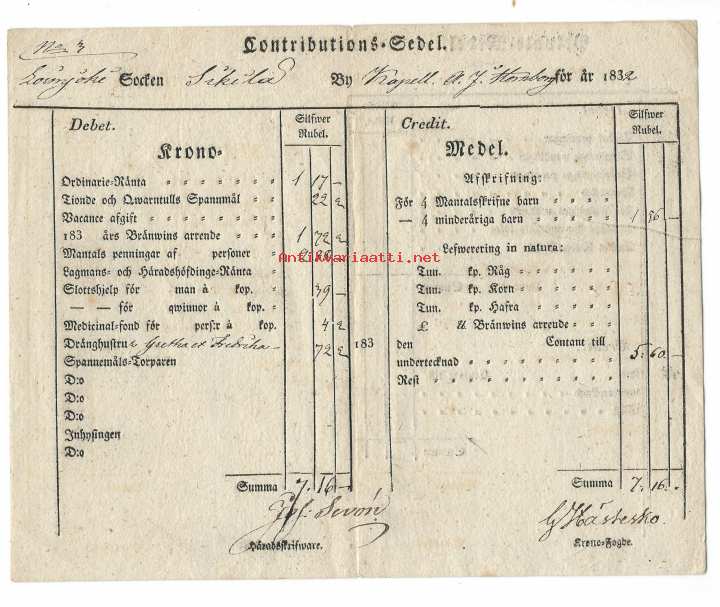 No 3
Contributions-Sedel.
Socken Sikila By Kapell. A. J. för år 1832
Debet.
Silfwer Rubel.
Krono-
Ordinarie-Ränta 1 17 –
Tionde och Qwarntulls Spannmål 22 2
Vacance afgift
183 års Bränwins arrende 1 72 2
Mantals penningar af personer
Lagmans- och Häradshöfdinge-Ränta
Slottshjelp för man à kop. 39 –
— — för qwinnor à kop.
Medicinal-fond för pers:r à kop. 4 2
Dränghustru 72 2
Spannemåls-Torparen
D:o
D:o
D:o
Inhysingen
D:o
Summa 7. 16 –
Häradsskrifware.
Credit.
Silfwer Rubel.
Medel.
Afskrifning:
För 4 Mantalsskrifne barn
— 4 minderåriga barn 1 56 –
Lefwerering in natura:
Tun. kp. Råg
Tun. kp. Korn
Tun. kp. Hafra
£ U Bränwins arrende
183 den Contant till
undertecknad 5. 60. –
Rest
Summa 7. 16. –
G Hästesko.
Krono-Fogde.
Antikvariaatti.net